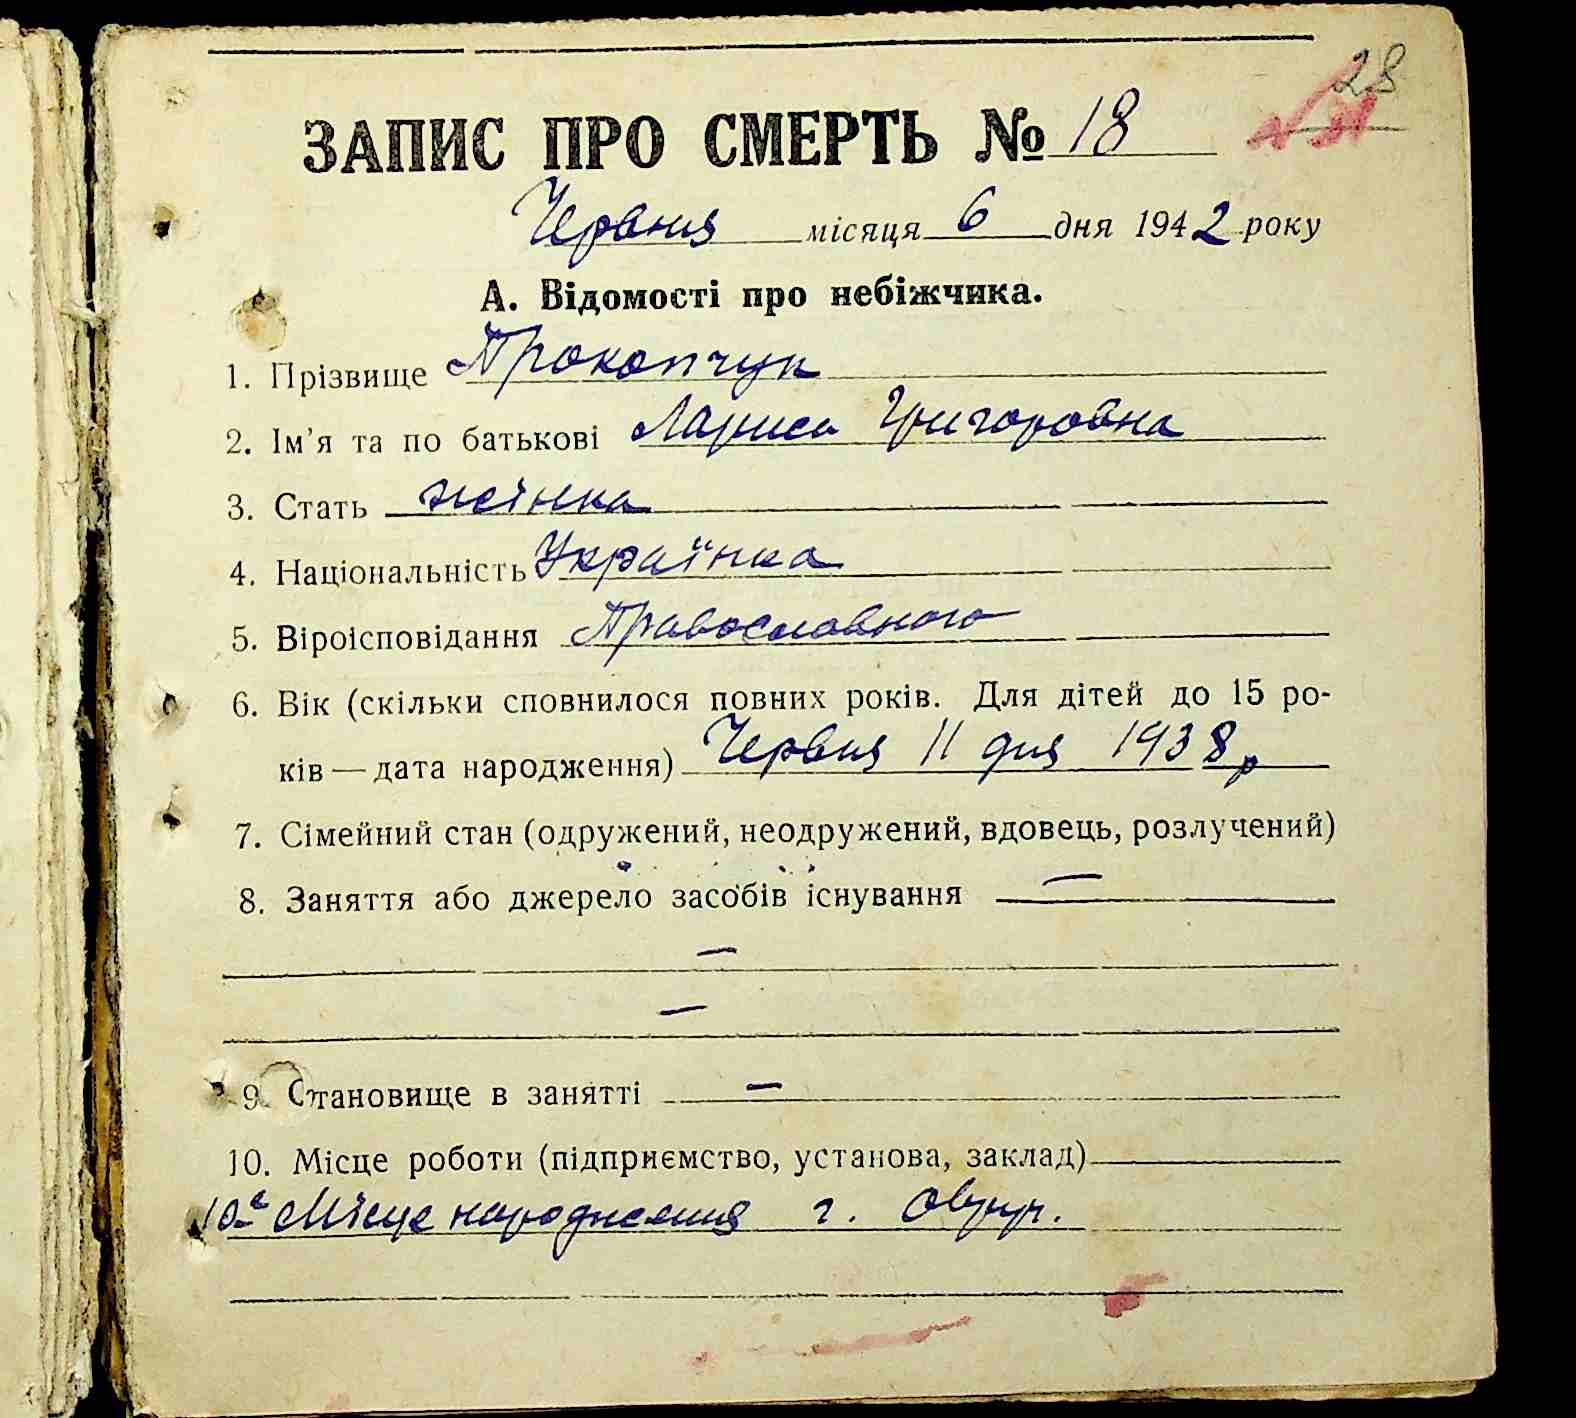 28
ЗАПИС ПРО СМЕРТЬ № 18
Червня місяця 6 дня 1942 року
А. Відомості про небіжчика.
1. Прізвище Прокопчук
2. Ім'я та по батькові Лариса Григоровна
3. Стать жінка
4. Національність Українка
5. Віроісповідання Православного
6. Вік (скільки сповнилося повних років. Для дітей до 15 ро-
ків — дата народження) Червня 11 дня 1938 р
7. Сімейний стан (одружений, неодружений, вдовець, розлучений)
8. Заняття або джерело засобів існування —
—
—
9. Становище в занятті —
10. Місце роботи (підприємство, установа, заклад)
10а Місце народження г. Овруч.